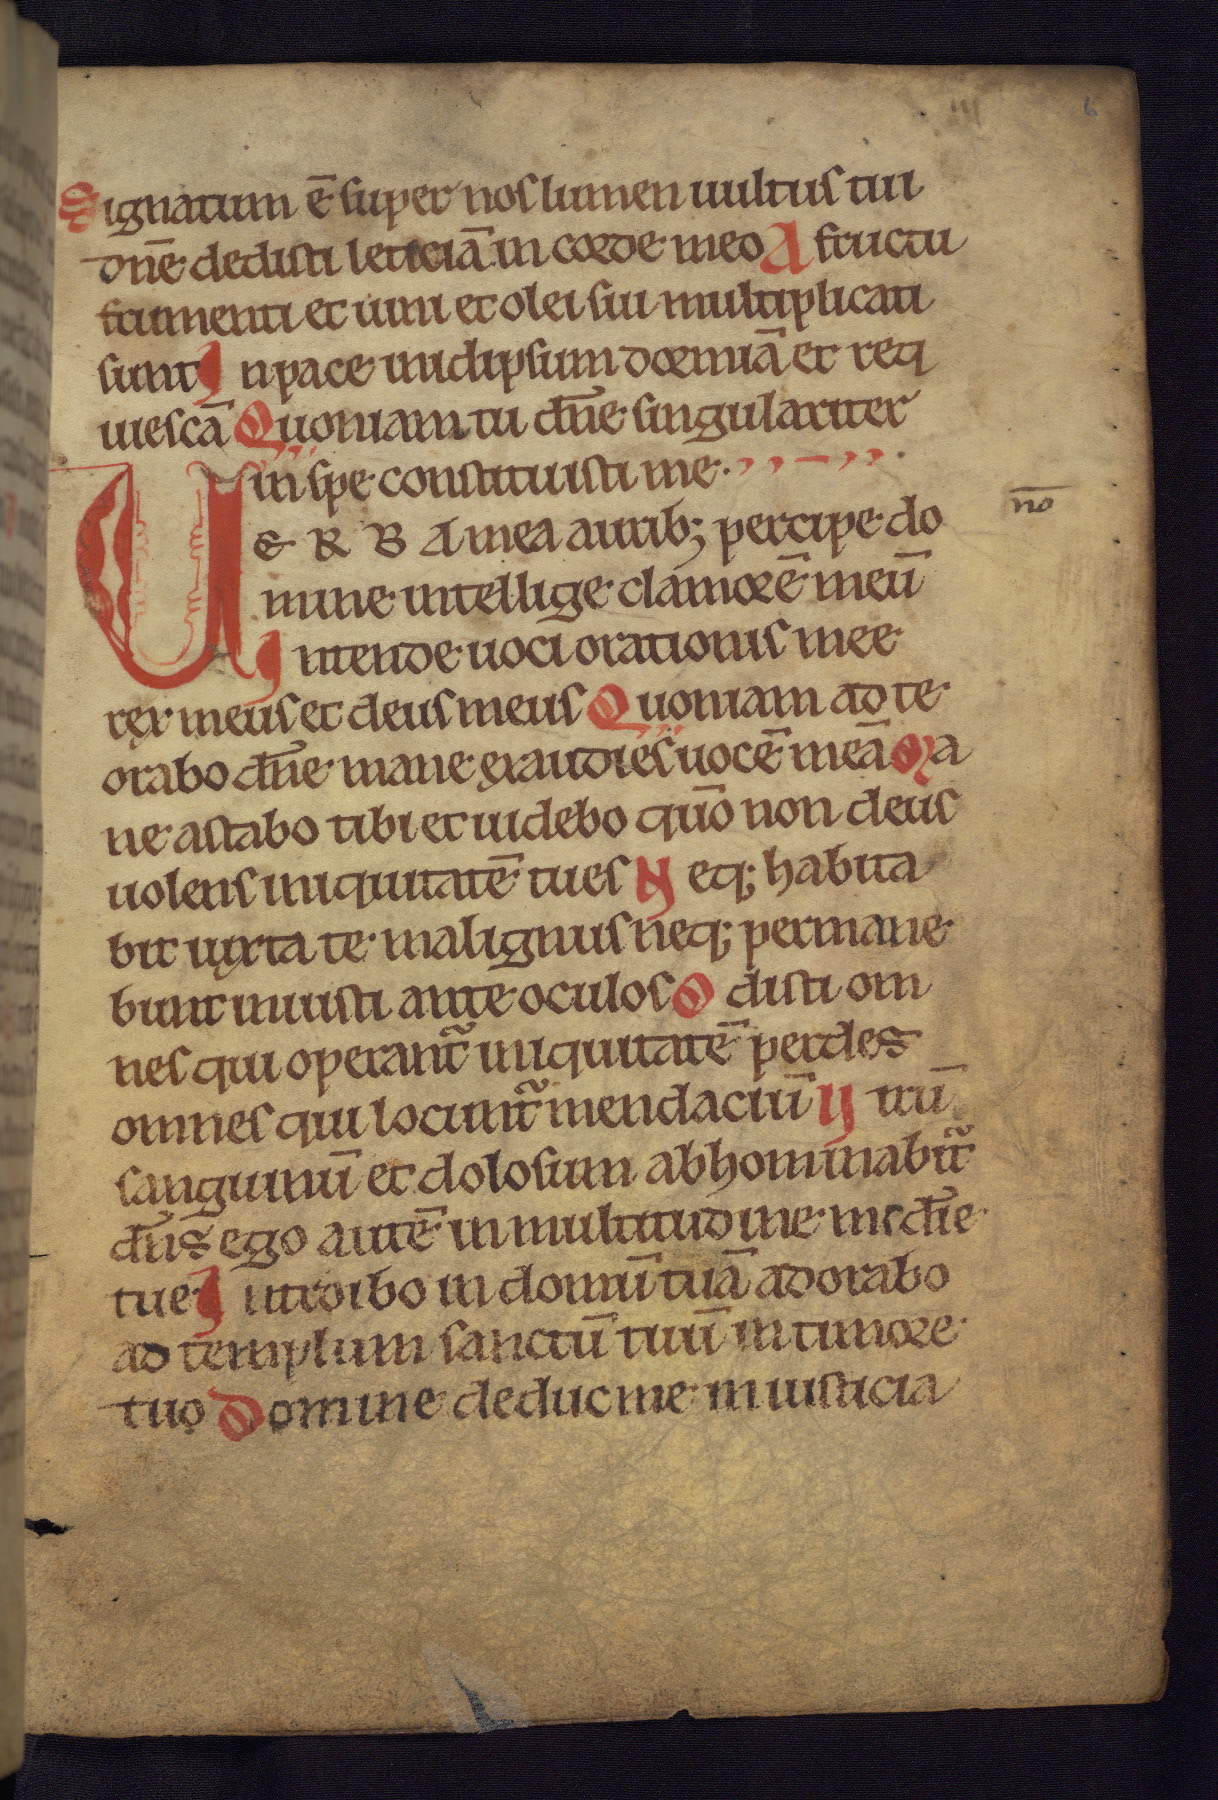 iii 6
Signatum ē super nos lumen uultus tui
dn̄e dedisti leticiā in corde meo A fructu
frumenti et uini et olei sui multiplicati
sunt In pace inidipsum dormiā et req
uiescā Quoniam tu dn̄e singulariter
in spe constituisti me.
no
UERBA mea aurib; percipe do
mine intellige clamorē meū
Intende uoci orationis mee
rex meus et deus meus Quoniam ad te
orabo dn̄e mane exaudies uocē meā Ma
ne astabo tibi et uidebo quō non deus
uolens iniquitatē tu es Neq; habita
bit iuxta te malignus neq; permane
bunt iniusti ante oculos Odisti om
nes qui operant᷑ iniquitatē perdes
omnes qui locunt᷑ mendaciū Uirū
sanguinū et dolosum abhominabit᷑
dn̄s ego autē in multitudine mcd̄ie
tue Introibo in domū tuā adorabo
ad templum sanctū tuū in timore
tuo Domine deduc me in iusticia